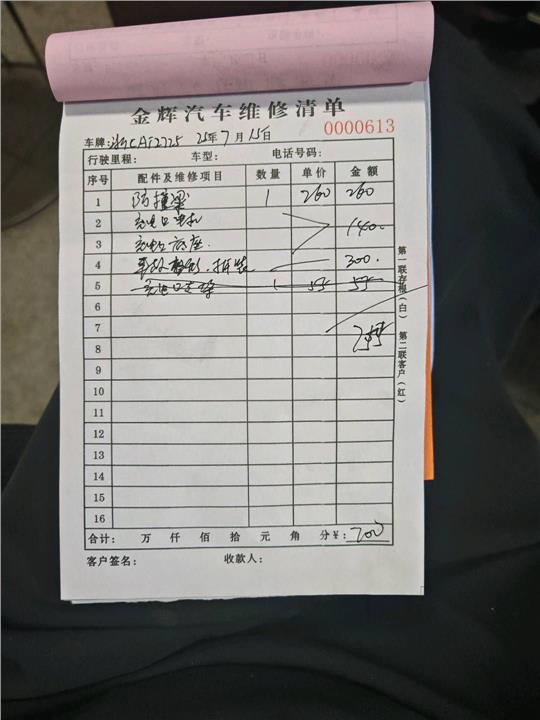 金辉汽车维修清单
车牌: 浙CAF2725 25年7月15日 0000613
行驶里程: 车型: 电话号码:
序号 配件及维修项目 数量 单价 金额
1 防撞梁 1 260 260
2 充电口电机
3 充电口底座. 140.
4 事故整形.拆装 300.
5 1 55 55
6
7
8
9
10
11
12
13
14
15
16
合计: 万 仟 佰 拾 元 角 分¥: 700
客户签名: 收款人:
第一联存根(白) 第二联客户(红)